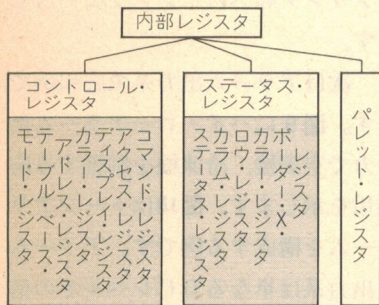 内部レジスタ
コントロール・
レジスタ
コマンド・レジスタ
アクセス・レジスタ
ディスプレイ・レジスタ
カラー・レジスタ
テーブル・ベース・
アドレス・レジスタ
モード・レジスタ
ステータス・
レジスタ
ボーダー・X・
レジスタ
カラー・レジスタ
ロウ・レジスタ
カラム・レジスタ
ステータス・レジスタ
パレット・レジスタ